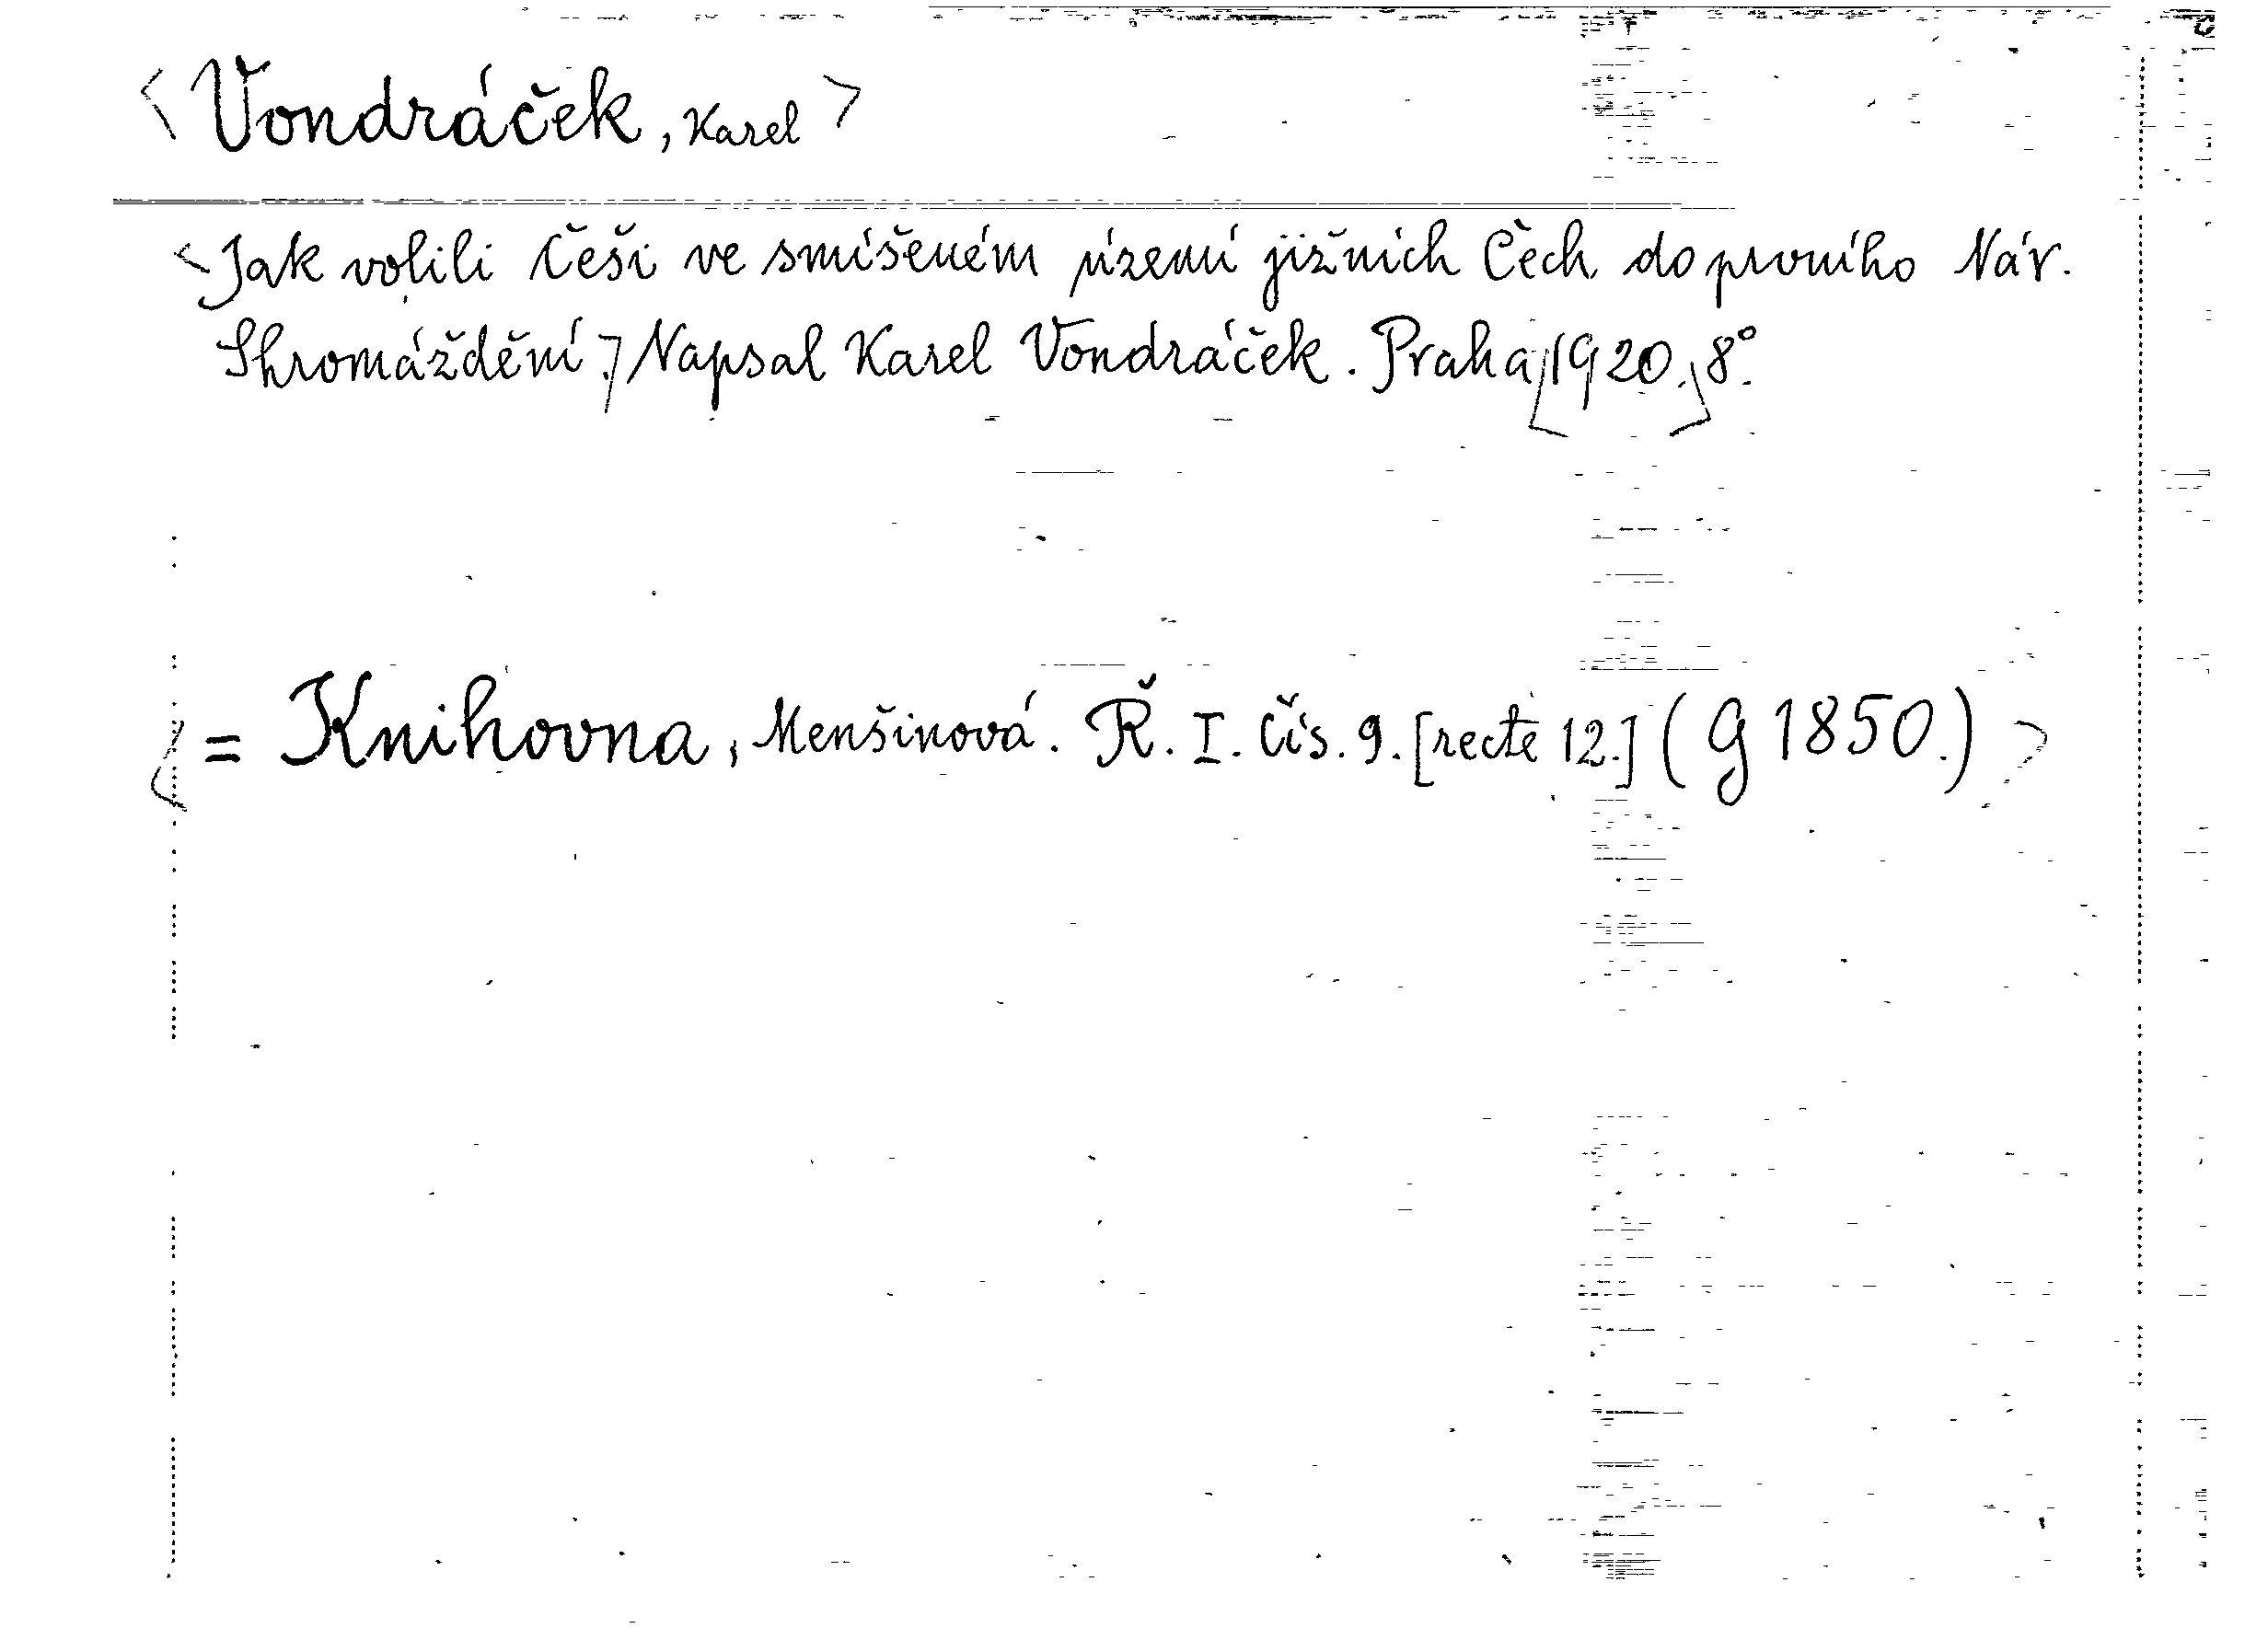 <Vondráček, Karel>
<Jak volili Češi ve smíšeném území jižních Čech do prvního Nár.
Shromáždění.> Napsal Karel Vondráček. Praha, [1920.] 8°.
<= Knihovna, Menšinová. Ř. I. Čís. 9. [recte 12.] (G 1850.)>